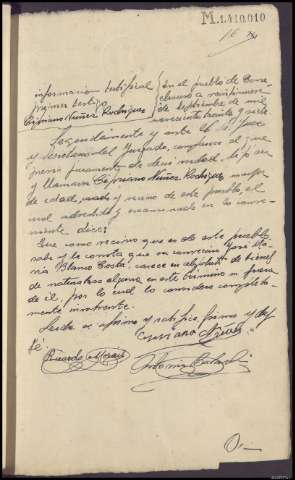 M.1.410.010
informacion testifical
primer testigo
Cipriano Nuñez Rodriguez
en el pueblo de
a veintinueve
de Septiembre de mil
novecientos treinta y siete
Seguidamente y ante el Sr Juez
y Secretario del Juzgado, comparece el que
previo juramento de decir verdad, dijo ser
y llamarse Cipriano Nuñez Rodriguez mayor
de edad, y vecino de este pueblo, el
cual advertido y examinado en la
mente dice:
Que como vecino que es de este pueblo,
sabe y le consta que su convecino José Ma
ria Blanco Costa, carece en absoluto de bienes
de naturaleza alguna en este termino ni fuera
de el, por lo cual lo considera completa
mente insolvente.
Leida se afirma y ratifica firma y doy
fé
Cipriano Nuñez
Ricardo
Antonio